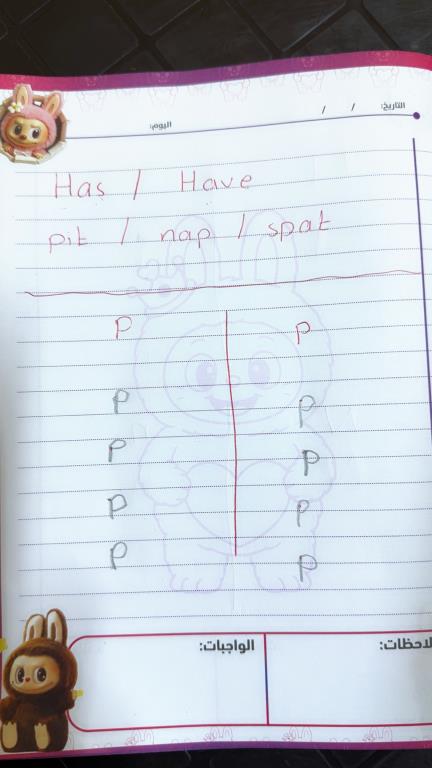 التاريخ: / /
اليوم:
Has / Have
pit / nap / spat
P P
P P
P P
P P
P P
الواجبات: